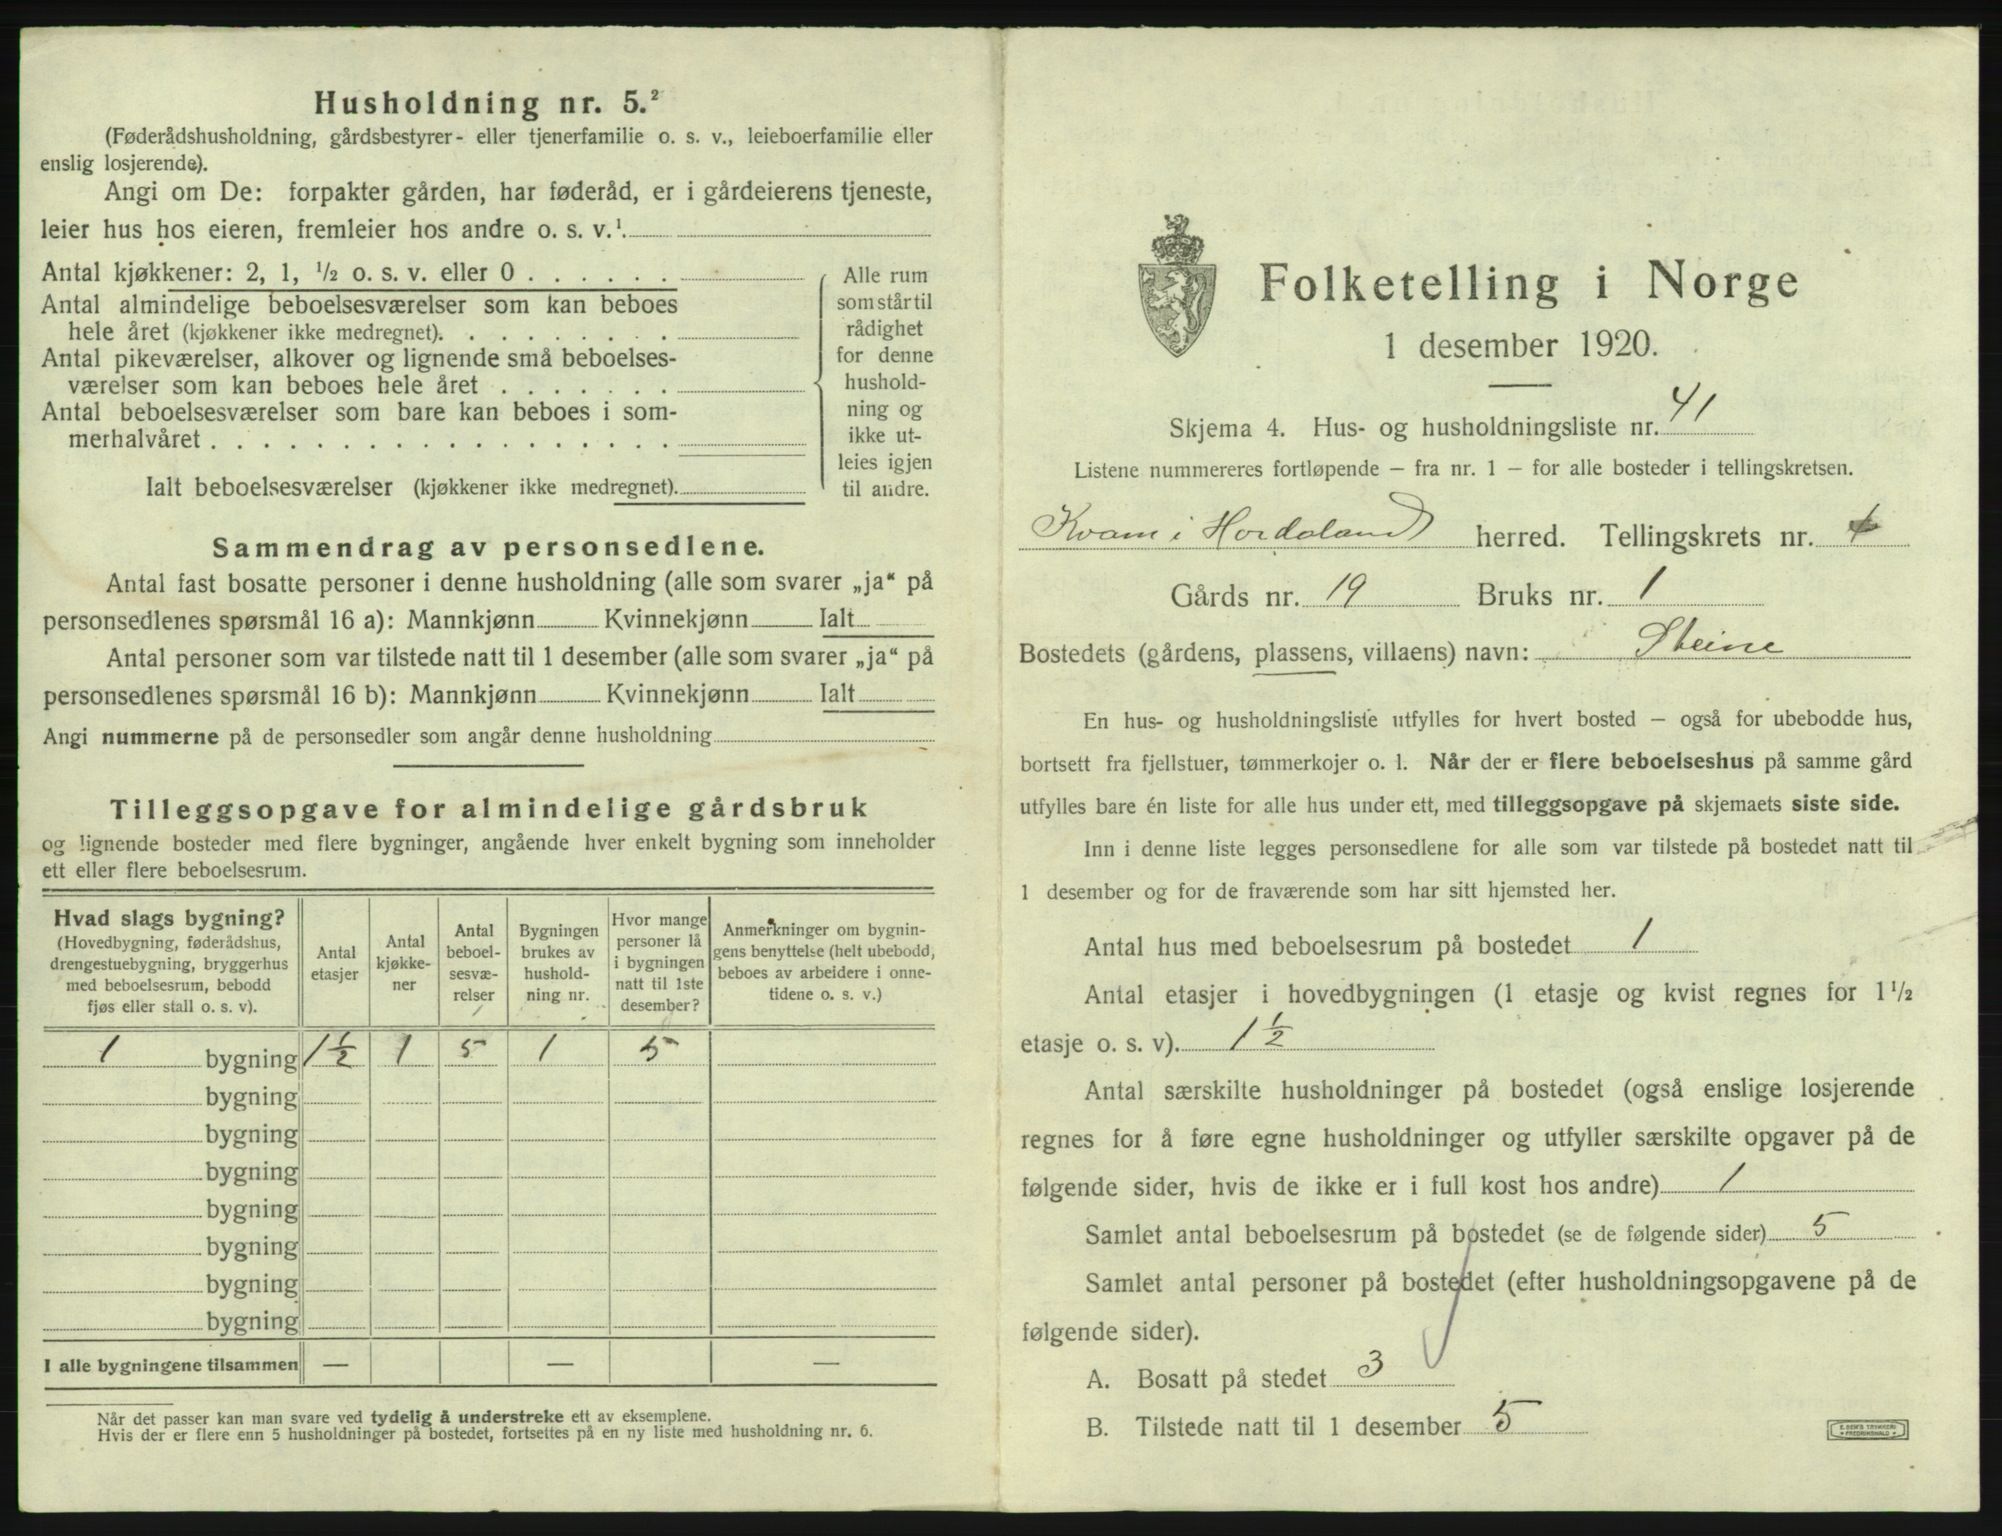 Husholdning nr. 5.²
(Føderådshusholdning, gårdsbestyrer- eller tjenerfamilie o. s. v., leieboerfamilie eller
enslig losjerende).
Angi om De: forpakter gården, har føderåd, er i gårdeierens tjeneste,
leier hus hos eieren, fremleier hos andre o. s. v.¹.
Antal kjøkkener: 2, 1, ½ o. s. v. eller 0 . . . . . .
Antal almindelige beboelsesværelser som kan beboes
hele året (kjøkkener ikke medregnet). . . . . . . . .
Antal pikeværelser, alkover og lignende små beboelses-
værelser som kan beboes hele året . . . . . . .
Antal beboelsesværelser som bare kan beboes i som-
merhalvåret . . . . . . . . . . . . . . . . . .
Ialt beboelsesværelser (kjøkkener ikke medregnet).
Alle rum
som står til
rådighet
for denne
hushold-
ning og
ikke ut-
leies igjen
til andre.
Sammendrag av personsedlene.
Antal fast bosatte personer i denne husholdning (alle som svarer „ja“ på
personsedlenes spørsmål 16 a): Mannkjønn Kvinnekjønn Ialt
Antal personer som var tilstede natt til 1 desember (alle som svarer „ja“ på
personsedlenes spørsmål 16 b): Mannkjønn Kvinnekjønn Ialt
Angi nummerne på de personsedler som angår denne husholdning
Tilleggsopgave for almindelige gårdsbruk
og lignende bosteder med flere bygninger, angående hver enkelt bygning som inneholder
ett eller flere beboelsesrum.
Hvad slags bygning?
(Hovedbygning, føderådshus,
drengestuebygning, bryggerhus
med beboelsesrum, bebodd
fjøs eller stall o. s. v).
Antal
etasjer
Antal
kjøkke-
ner
Antal
beboel-
sesvæ-
relser
Bygningen
brukes av
hushold-
ning nr.
Hvor mange
personer lå
i bygningen
natt til 1ste
desember?
Anmerkninger om bygnin-
gens benyttelse (helt ubebodd,
beboes av arbeidere i onne-
tidene o. s. v.)
1 bygning 1 ½ 1 5 1 5
bygning
bygning
bygning
bygning
bygning
bygning
bygning
I alle bygningene tilsammen — — —
Når det passer kan man svare ved tydelig å understreke ett av eksemplene.
Hvis der er flere enn 5 husholdninger på bostedet, fortsettes på en ny liste med husholdning nr. 6.
Folketelling i Norge
1 desember 1920.
Skjema 4. Hus- og husholdningsliste nr. 41
Listene nummereres fortløpende – fra nr. 1 – for alle bosteder i tellingskretsen.
Kvam i Hordaland herred. Tellingskrets nr.
Gårds nr. 19 Bruks nr. 1
Bostedets (gårdens, plassens, villaens) navn: Steine
En hus- og husholdningsliste utfylles for hvert bosted – også for ubebodde hus,
bortsett fra fjellstuer, tømmerkojer o. l. Når der er flere beboelseshus på samme gård
utfylles bare én liste for alle hus under ett, med tilleggsopgave på skjemaets siste side.
Inn i denne liste legges personsedlene for alle som var tilstede på bostedet natt til
1 desember og for de fraværende som har sitt hjemsted her.
Antal hus med beboelsesrum på bostedet 1
Antal etasjer i hovedbygningen (1 etasje og kvist regnes for 1 ½
etasje o. s. v). 1 ½
Antal særskilte husholdninger på bostedet (også enslige losjerende
regnes for å føre egne husholdninger og utfyller særskilte opgaver på de
følgende sider, hvis de ikke er i full kost hos andre) 1
Samlet antal beboelsesrum på bostedet (se de følgende sider) 5
Samlet antal personer på bostedet (efter husholdningsopgavene på de
følgende sider).
A. Bosatt på stedet 3
B. Tilstede natt til 1 desember 5